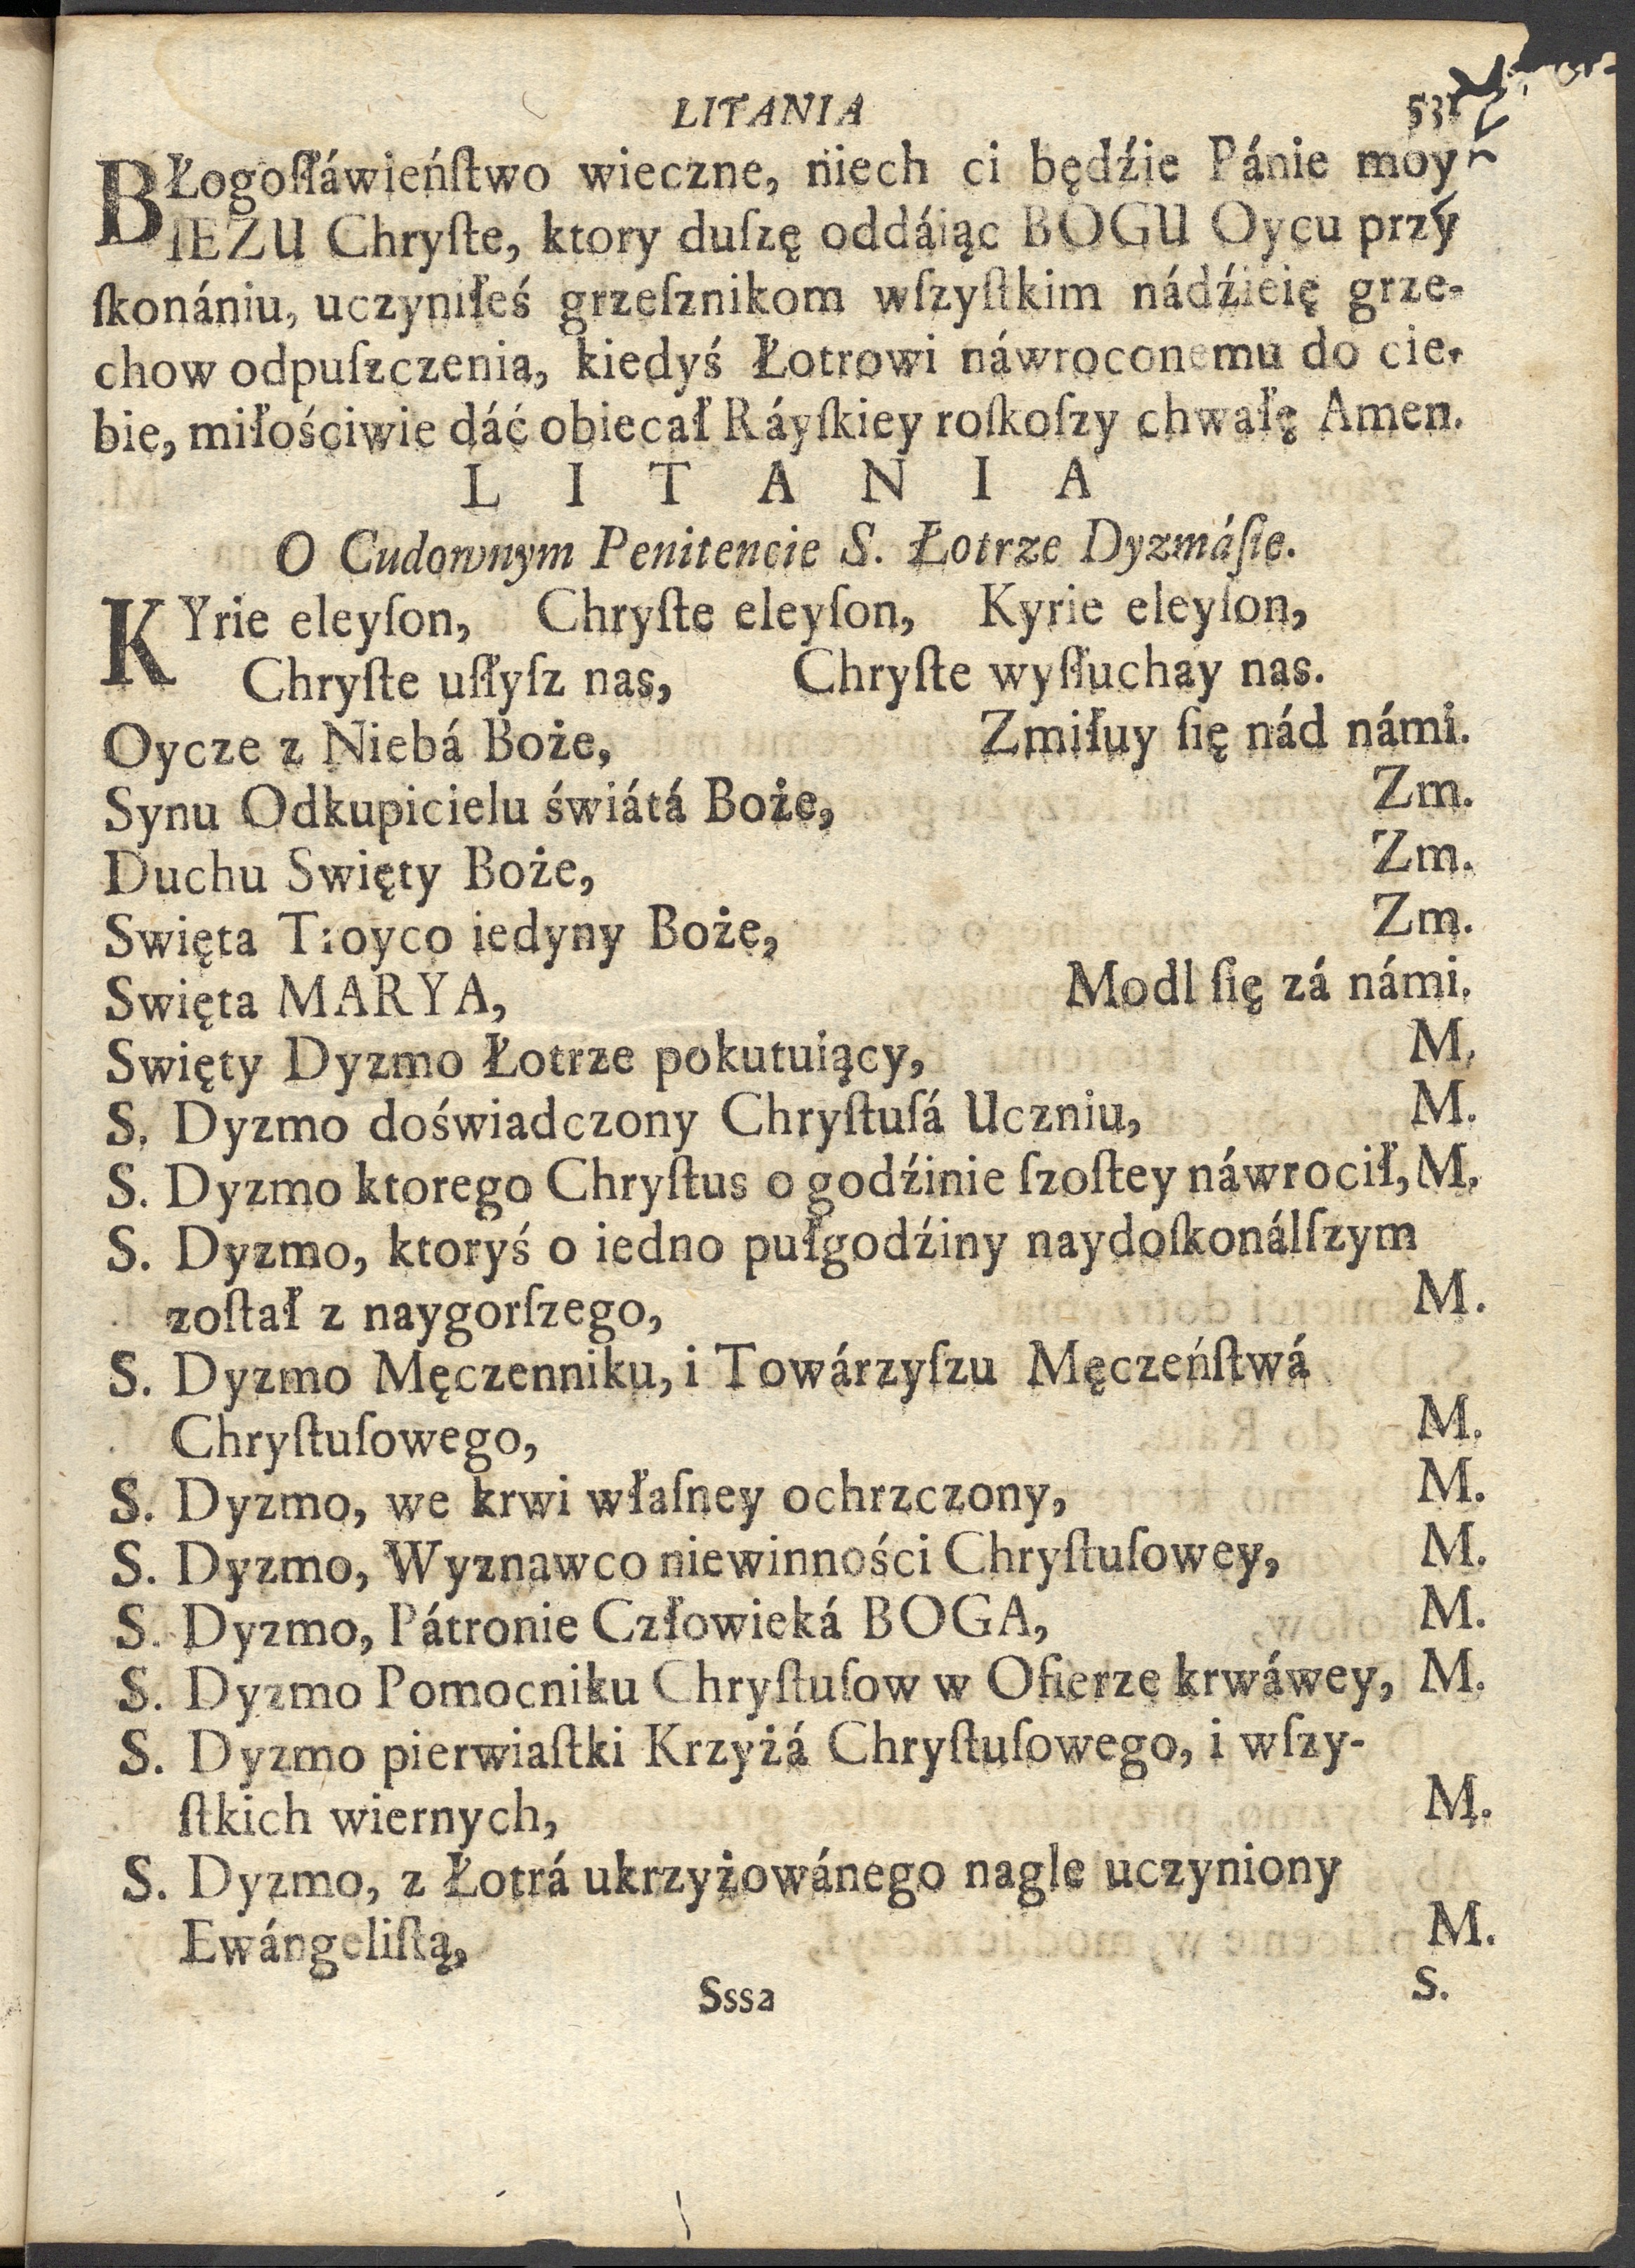 LITANIA
BŁogoſłáwieńſtwo wieczne, niech ci będźie Pánie moy
IEZU Chryſte, ktory duſzę oddáiąc BOGU Oycu przy
ſkonániu, uczyniłeś grzeſznikom wſzyſtkim nádźieię grze-
chow odpuſzczenia, kiedyś Łotrowi náwroconemu do cie-
bie, miłościwie dáć obiecał Ráyſkiey roſkoſzy chwałę Amen.
L I T A N I A
O Cudownym Penitencie S. Łotrze Dyzmáſie.
KYrie eleyſon, Chryſte eleyſon, Kyrie eleyſon,
Chryſte uſłyſz nas, Chryſte wyſłuchay nas.
Oycze z Niebá Boże, Zmiłuy ſię nád námi.
Synu Odkupicielu świátá Boże, Zm.
Duchu Swięty Boże, Zm.
Swięta Troyco iedyny Boże, Zm.
Swięta MARYA, Modl ſię zá námi.
Swięty Dyzmo Łotrze pokutuiący, M.
S. Dyzmo doświadczony Chryſtuſá Uczniu, M.
S. Dyzmo ktorego Chryſtus o godźinie ſzoſtey náwrocił, M.
S. Dyzmo, ktoryś o iedno pułgodźiny naydoſkonálſzym
zoſtał z naygorſzego, M.
S. Dyzmo Męczenniku, i Towárzyſzu Męczeńſtwá
Chryſtuſowego, M.
S. Dyzmo, we krwi właſney ochrzczony, M.
S. Dyzmo, Wyznawco niewinności Chryſtuſowey, M.
S. Dyzmo, Pátronie Człowieká BOGA, M.
S. Dyzmo Pomocniku Chryſtuſow w Ofierze krwáwey, M.
S. Dyzmo pierwiaſtki Krzyżá Chryſtuſowego, i wſzy-
ſtkich wiernych, M.
S. Dyzmo, z Łotrá ukrzyżowánego nagle uczyniony
Ewángeliſtą, M.
Sssa S.